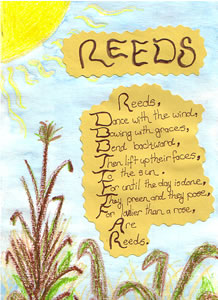 REEDS
Reeds,
Dance with the wind,
Bowing with graces,
Bend backward,
Then lift up their faces,
To the sun.
For until the day is done,
They preen and they pose,
Far fairer than a rose,
Are
Reeds.